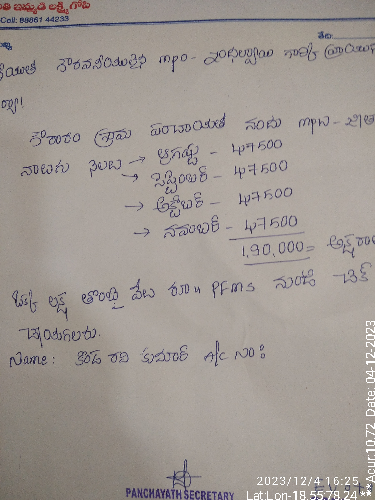 ఇమ్మడి లక్ష్మీ గోపి
Cell: 98861 44233
తేది:
గౌరవనీయులైన mpo- గారికి
గౌరారం గ్రామ పంచాయతీ నందు mpw-
నాలుగు నెలలు → ఆగష్టు - 47500
→ సెప్టెంబర్ - 47500
→ అక్టోబర్ - 47500
→ నవంబర్ - 47500
1,90,000=
ఒక్క లక్ష తొంభై వేల రూ॥ PFMS నుండి చెక్
చేయగలరు.
Name: కొండ రవి కుమార్ A/c నెం:
PANCHAYATH SECRETARY
2023/12/4 16:25
Lat:Lon-18.5578.24
**Acur:10.72, Date: 04-12-2023